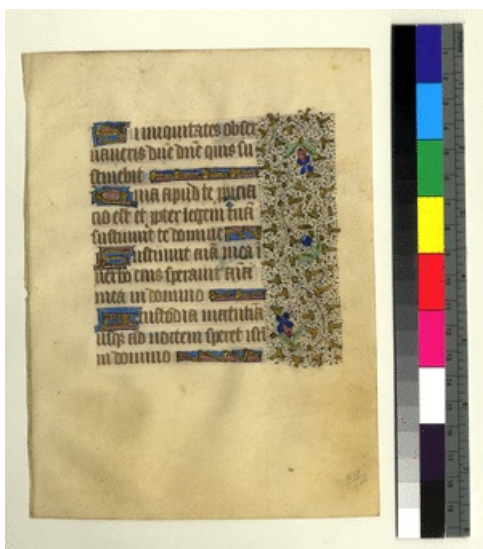 Si iniquitates obser
uaueris dñe dñe quis su
stinebit
Quia apud te ꝓpicia
cio est et ꝓpter legem tuã
sustinui te domine
Sustinuit aĩa mea i
uerbo eius sperauit aĩa
mea in domino
A custodia matutina
usqꝫ ad noctem speret isrl
in domino